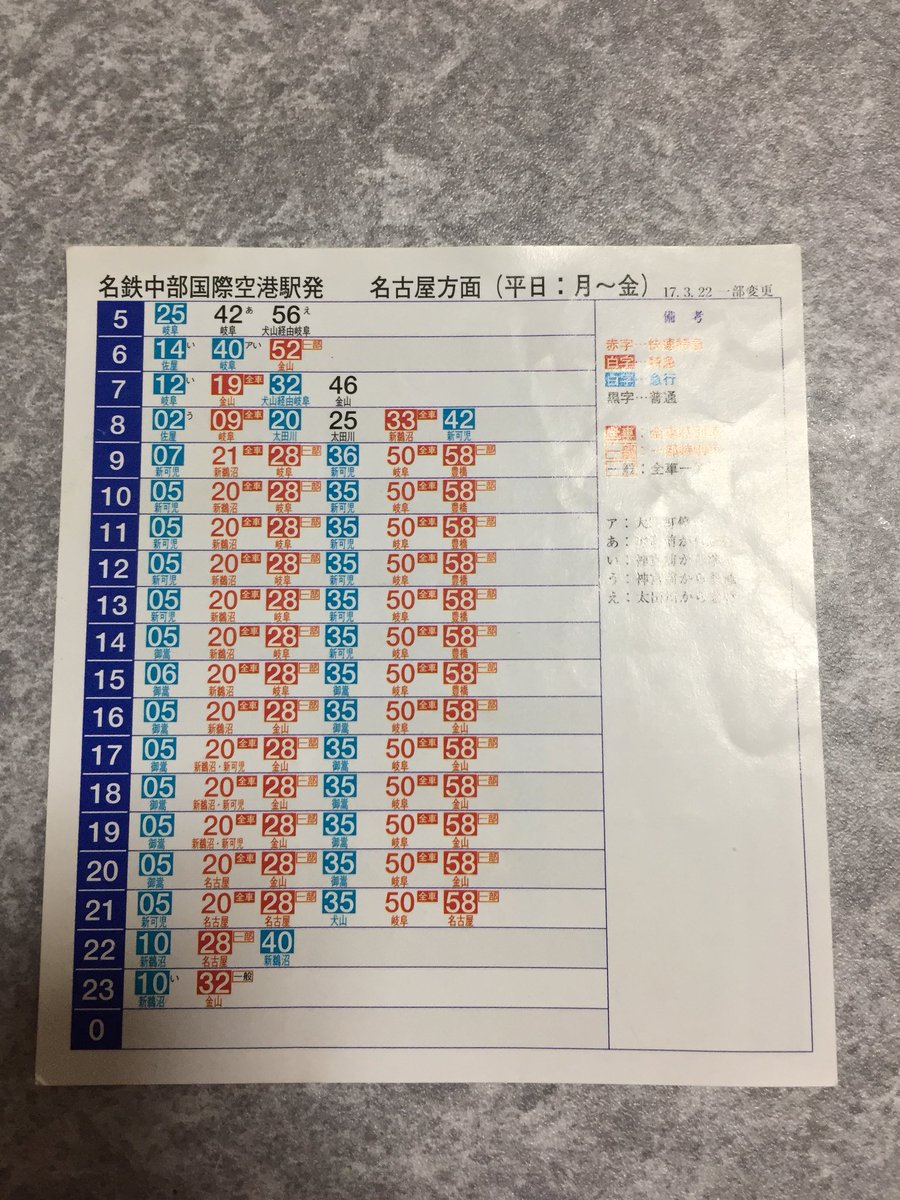 名鉄中部国際空港駅発 名古屋方面（平日：月～金） 17.3.22 一部変更
5 25 42あ 56え
岐阜 岐阜 犬山経由岐阜
6 14い 40アい 52一部
佐屋 岐阜 金山
7 12い 19全車 32 46
岐阜 金山 犬山経由岐阜 金山
8 02う 09全車 20 25 33全車 42
佐屋 岐阜 太田川 太田川 新鵜沼 新可児
9 07 21全車 28一部 36 50全車 58一部
新可児 新鵜沼 岐阜 新可児 岐阜 豊橋
10 05 20全車 28一部 35 50全車 58一部
新可児 新鵜沼 岐阜 新可児 岐阜 豊橋
11 05 20全車 28一部 35 50全車 58一部
新可児 新鵜沼 岐阜 新可児 岐阜 豊橋
12 05 20全車 28一部 35 50全車 58一部
新可児 新鵜沼 岐阜 新可児 岐阜 豊橋
13 05 20全車 28一部 35 50全車 58一部
新可児 新鵜沼 岐阜 新可児 岐阜 豊橋
14 05 20全車 28一部 35 50全車 58一部
御嵩 新鵜沼 岐阜 新可児 岐阜 豊橋
15 06 20全車 28一部 35 50全車 58一部
御嵩 新鵜沼 岐阜 御嵩 岐阜 豊橋
16 05 20全車 28一部 35 50全車 58一部
御嵩 新鵜沼 金山 御嵩 岐阜 金山
17 05 20全車 28一部 35 50全車 58一部
御嵩 新鵜沼・新可児 金山 御嵩 岐阜 金山
18 05 20全車 28一部 35 50全車 58一部
御嵩 新鵜沼・新可児 金山 御嵩 岐阜 金山
19 05 20全車 28一部 35 50全車 58一部
御嵩 新鵜沼・新可児 金山 御嵩 岐阜 金山
20 05 20全車 28一部 35 50全車 58一部
御嵩 名古屋 金山 御嵩 岐阜 金山
21 05 20全車 28一部 35 50全車 58一部
新可児 名古屋 名古屋 犬山 岐阜 名古屋
22 10 28一部 40
新鵜沼 名古屋 新鵜沼
23 10い 32一般
新鵜沼 金山
0
備考
赤字…快速特急
白字…特急
白字…急行
黒字…普通
全車：
一部：
一般：全車一
ア：
あ：
い：
う：神宮前から
え：太田川から